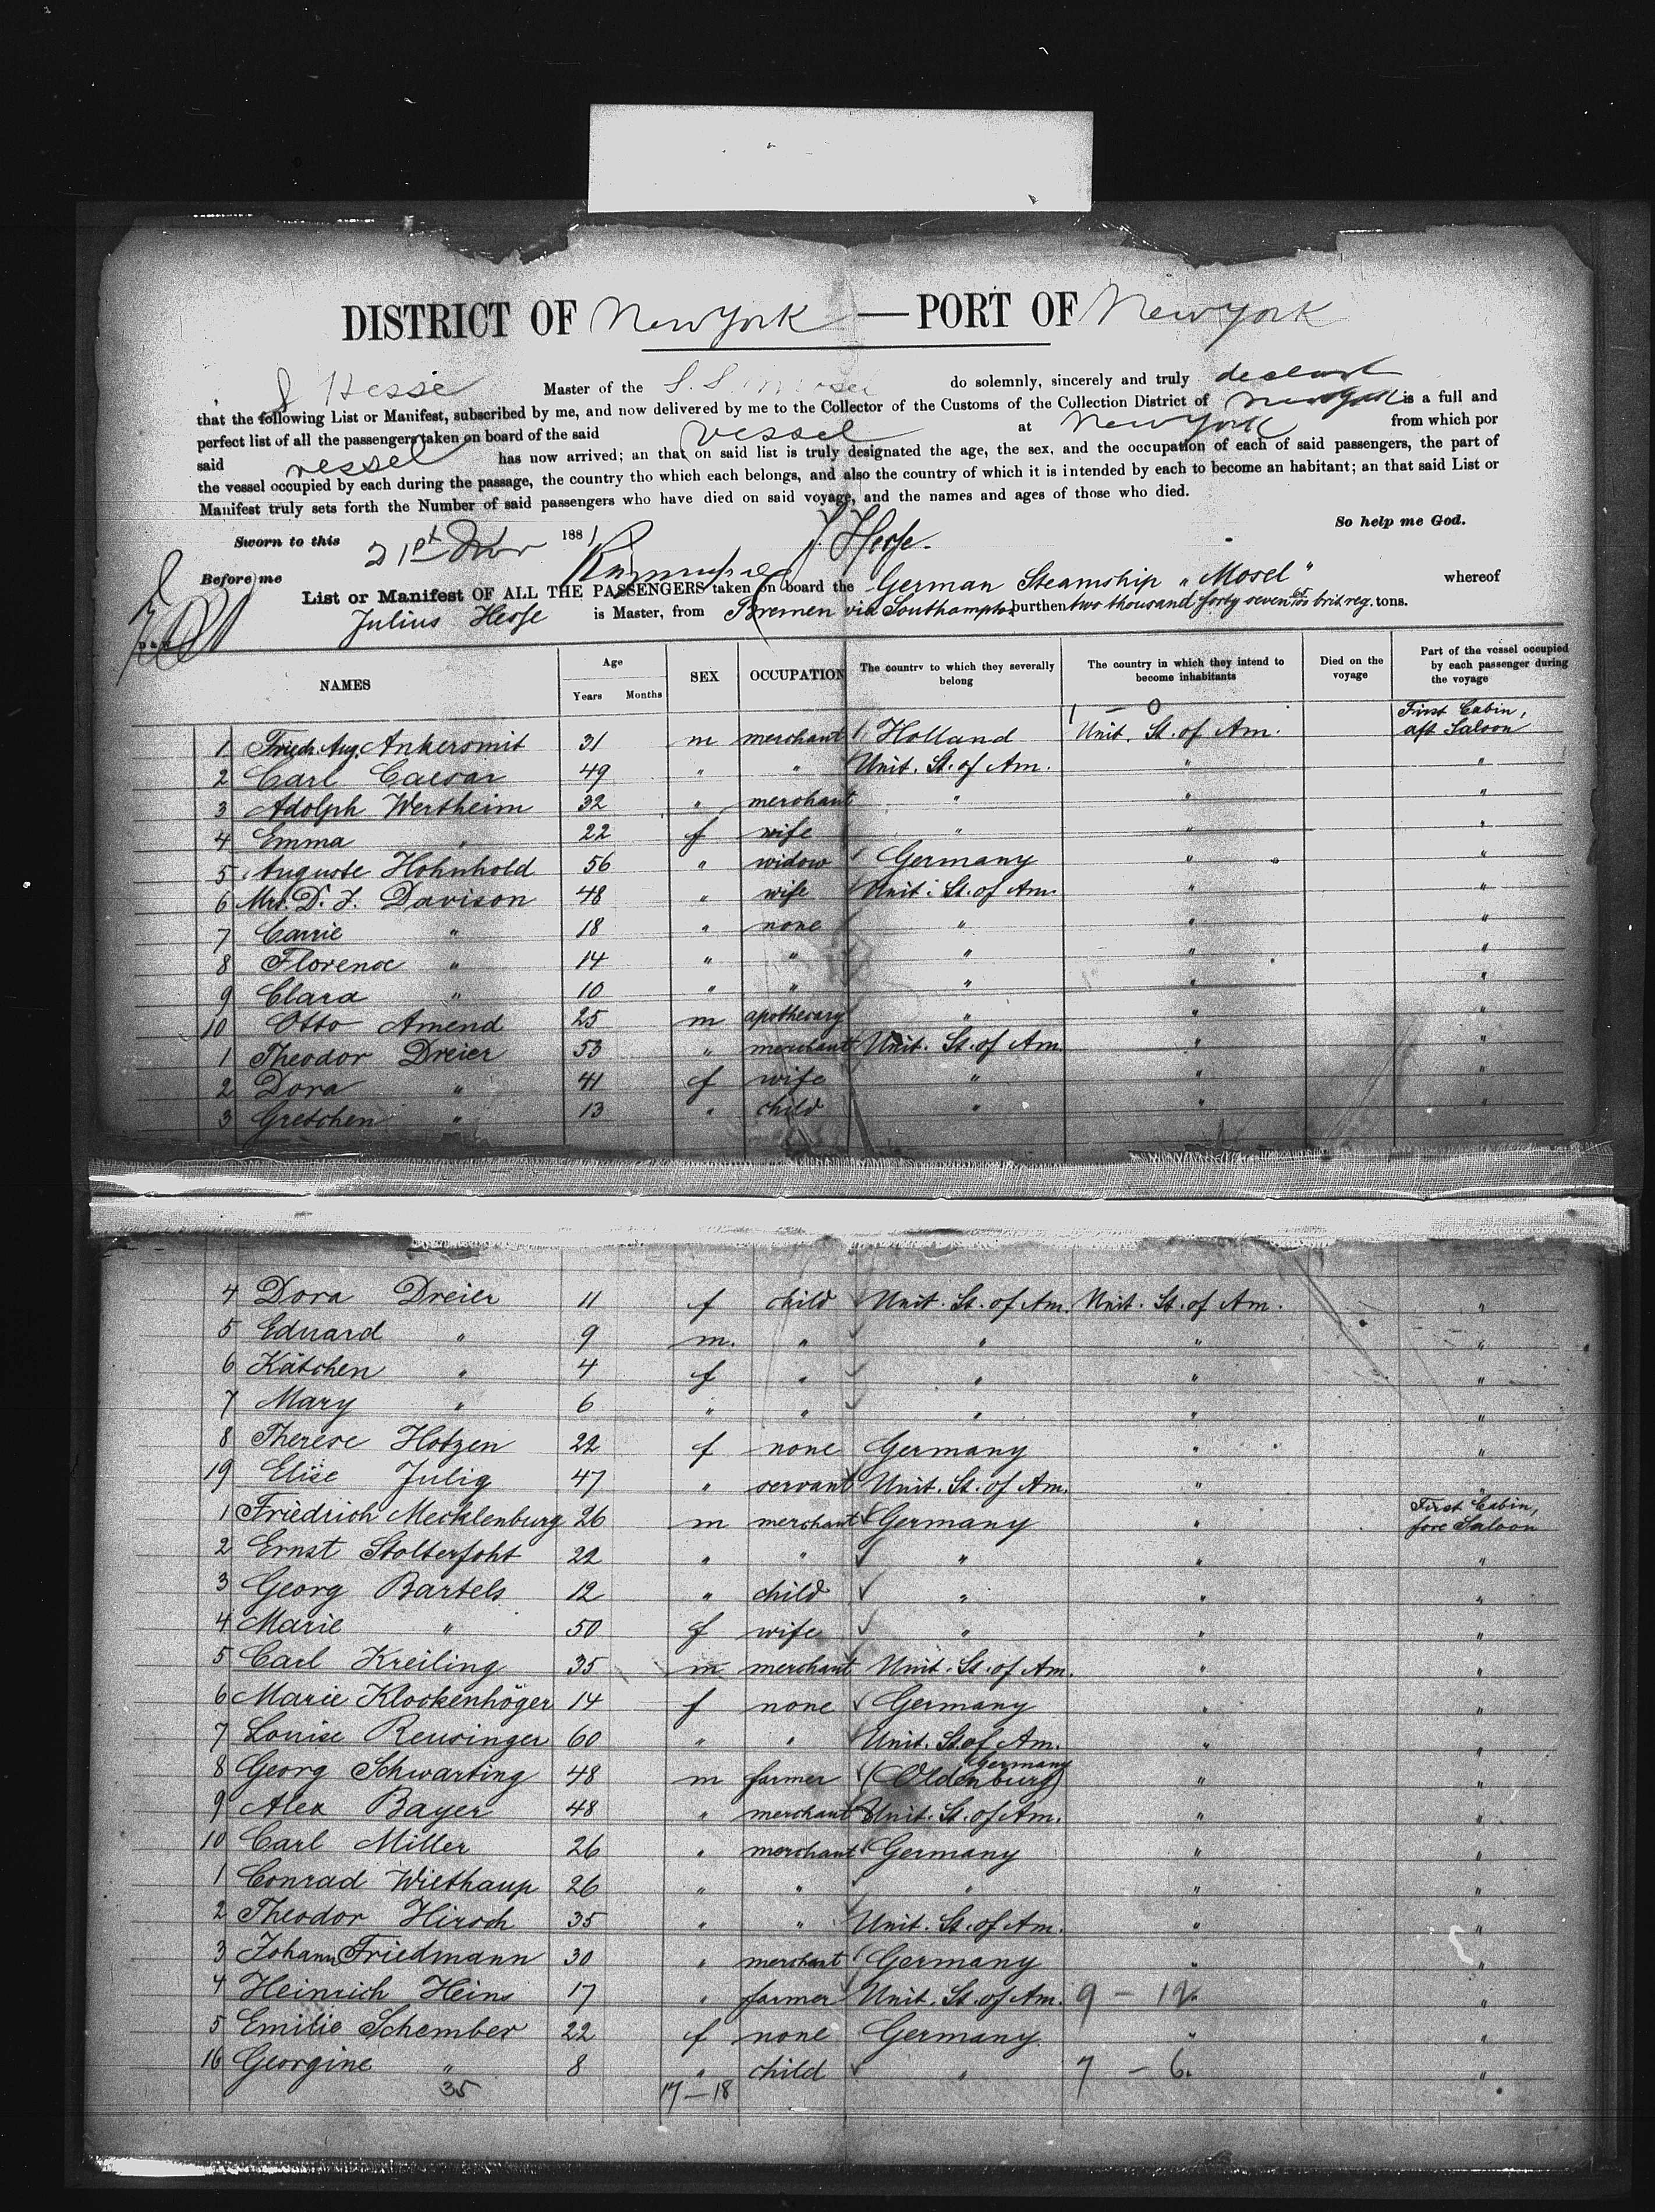 DISTRICT OF New York — PORT OF New York
J Hesse Master of the S. S. Mosel do solemnly, sincerely and truly declare
that the following List or Manifest, subscribed by me, and now delivered by me to the Collector of the Customs of the Collection District of New York is a full and
perfect list of all the passengers taken on board of the said vessel at New York from which por
said vessel has now arrived; an that on said list is truly designated the age, the sex, and the occupation of each of said passengers, the part of
the vessel occupied by each during the passage, the country tho which each belongs, and also the country of which it is intended by each to become an habitant; an that said List or
Manifest truly sets forth the Number of said passengers who have died on said voyage, and the names and ages of those who died.
So help me God.
Sworn to this 21st 1881 J. Hesse.
Before me
List or Manifest OF ALL THE PASSENGERS taken on board the German Steamship "Mosel" whereof
Julius Hesse is Master, from Bremen via Southampton burthen two thousand forty seven brit. reg. tons.
NAMES Age Years Months SEX OCCUPATION The country to which they severally belong The country in which they intend to become inhabitants Died on the voyage Part of the vessel occupied by each passenger during the voyage
1 – 0
1 Friedr. Aug. Ankersmit 31 m merchant Holland Unit. St. of Am. First Cabin, aft Saloon
2 Carl Caesar 49 " " Unit. St. of Am. " "
3 Adolph Wertheim 32 " merchant " " "
4 Emma " 22 f wife " " "
5 Auguste Hohnhold 56 " widow Germany " "
6 Mrs. D. J. Davison 48 " wife Unit. St. of Am. " "
7 Carrie " 18 " none " " "
8 Florence " 14 " " " " "
9 Clara " 10 " " " " "
10 Otto Amend 25 m apothecary " " "
1 Theodor Dreier 53 " merchant Unit. St. of Am. " "
2 Dora " 41 f wife " " "
3 Gretchen " 13 " child " " "
4 Dora Dreier 11 f child Unit. St. of Am. Unit. St. of Am. "
5 Eduard " 9 m. " " " "
6 Kätchen " 4 f " " " "
7 Mary " 6 " " " " "
8 Therese Hotzen 22 f none Germany " "
19 Elise Julig 47 " servant Unit. St. of Am. " "
1 Friedrich Mecklenburg 26 m merchant Germany " First Cabin, fore Saloon
2 Ernst Stolterfoht 22 " " " " "
3 Georg Bartels 12 " child " " "
4 Marie " 50 f wife " " "
5 Carl Kreiling 35 m merchant Unit. St. of Am. " "
6 Marie Klockenhöger 14 f none Germany " "
7 Louise Reusinger 60 " " Unit. St. of Am. " "
8 Georg Schwarting 48 m farmer (Oldenburg) Germany " "
9 Alex Bayer 48 " merchant Unit. St. of Am. " "
10 Carl Miller 26 " merchant Germany " "
1 Conrad Wiethaup 26 " " " " "
2 Theodor Hirsch 35 " " Unit. St. of Am. " "
3 Johann Friedmann 30 " merchant Germany " "
4 Heinrich Heins 17 " farmer Unit. St. of Am. 9 – 12 "
5 Emilie Schember 22 f none Germany " "
16 Georgine " 8 " child " 7 – 6 "
35 17 – 18